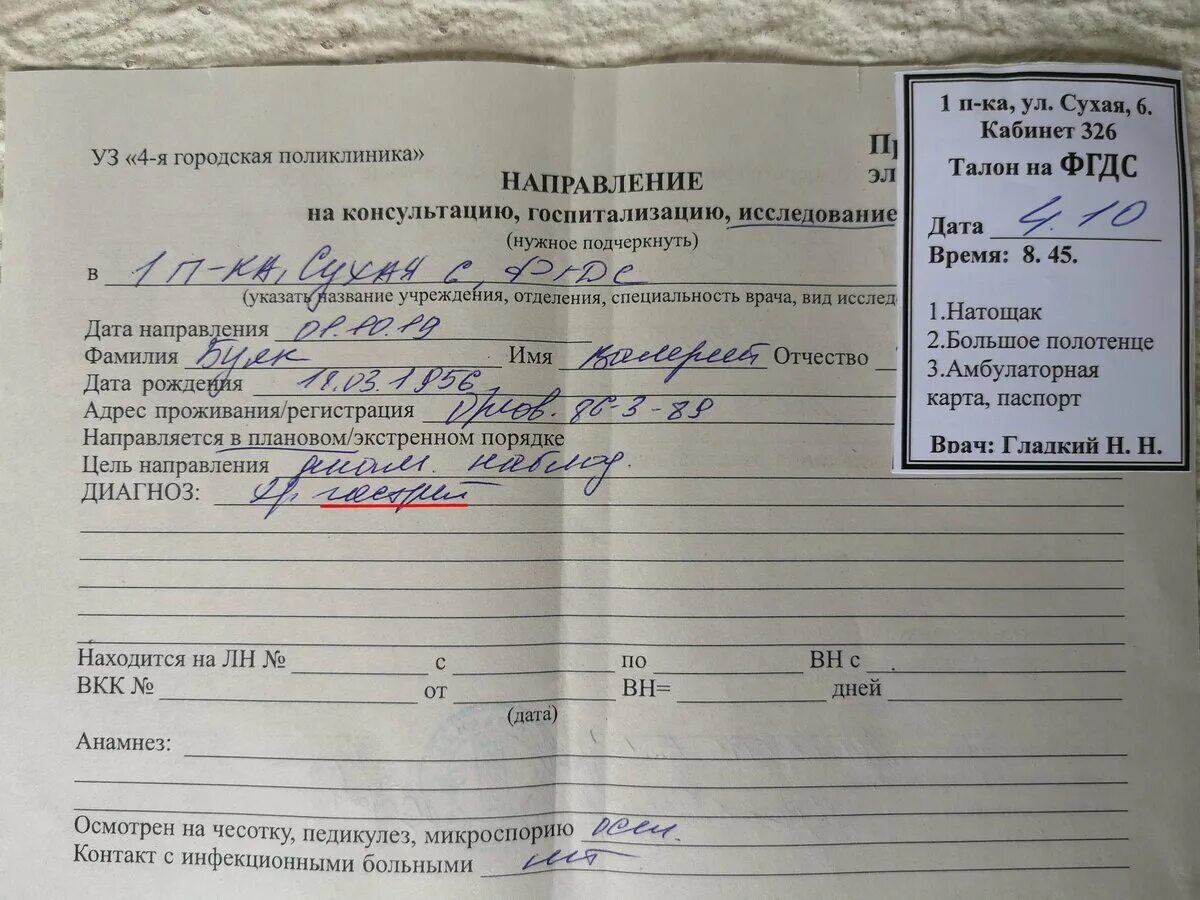 УЗ «4-я городская поликлиника»
НАПРАВЛЕНИЕ
на консультацию, госпитализацию, исследование
(нужное подчеркнуть)
в 1 п-ка, Сухая 6, ФГДС
(указать название учреждения, отделения, специальность врача, вид исслед
Дата направления 01.10.19
Фамилия Буяк Имя Валерий Отчество
Дата рождения 18.03.1956
Адрес проживания/регистрация 86-3-89
Направляется в плановом/экстренном порядке
Цель направления наблюд.
ДИАГНОЗ: Хр. гастрит
Находится на ЛН № с по ВН с
ВКК № от ВН= дней
(дата)
Анамнез:
Осмотрен на чесотку, педикулез, микроспорию осм.
Контакт с инфекционными больными нет
1 п-ка, ул. Сухая, 6.
Кабинет 326
Талон на ФГДС
Дата 4.10
Время: 8. 45.
1.Натощак
2.Большое полотенце
3.Амбулаторная
карта, паспорт
Врач: Гладкий Н. Н.